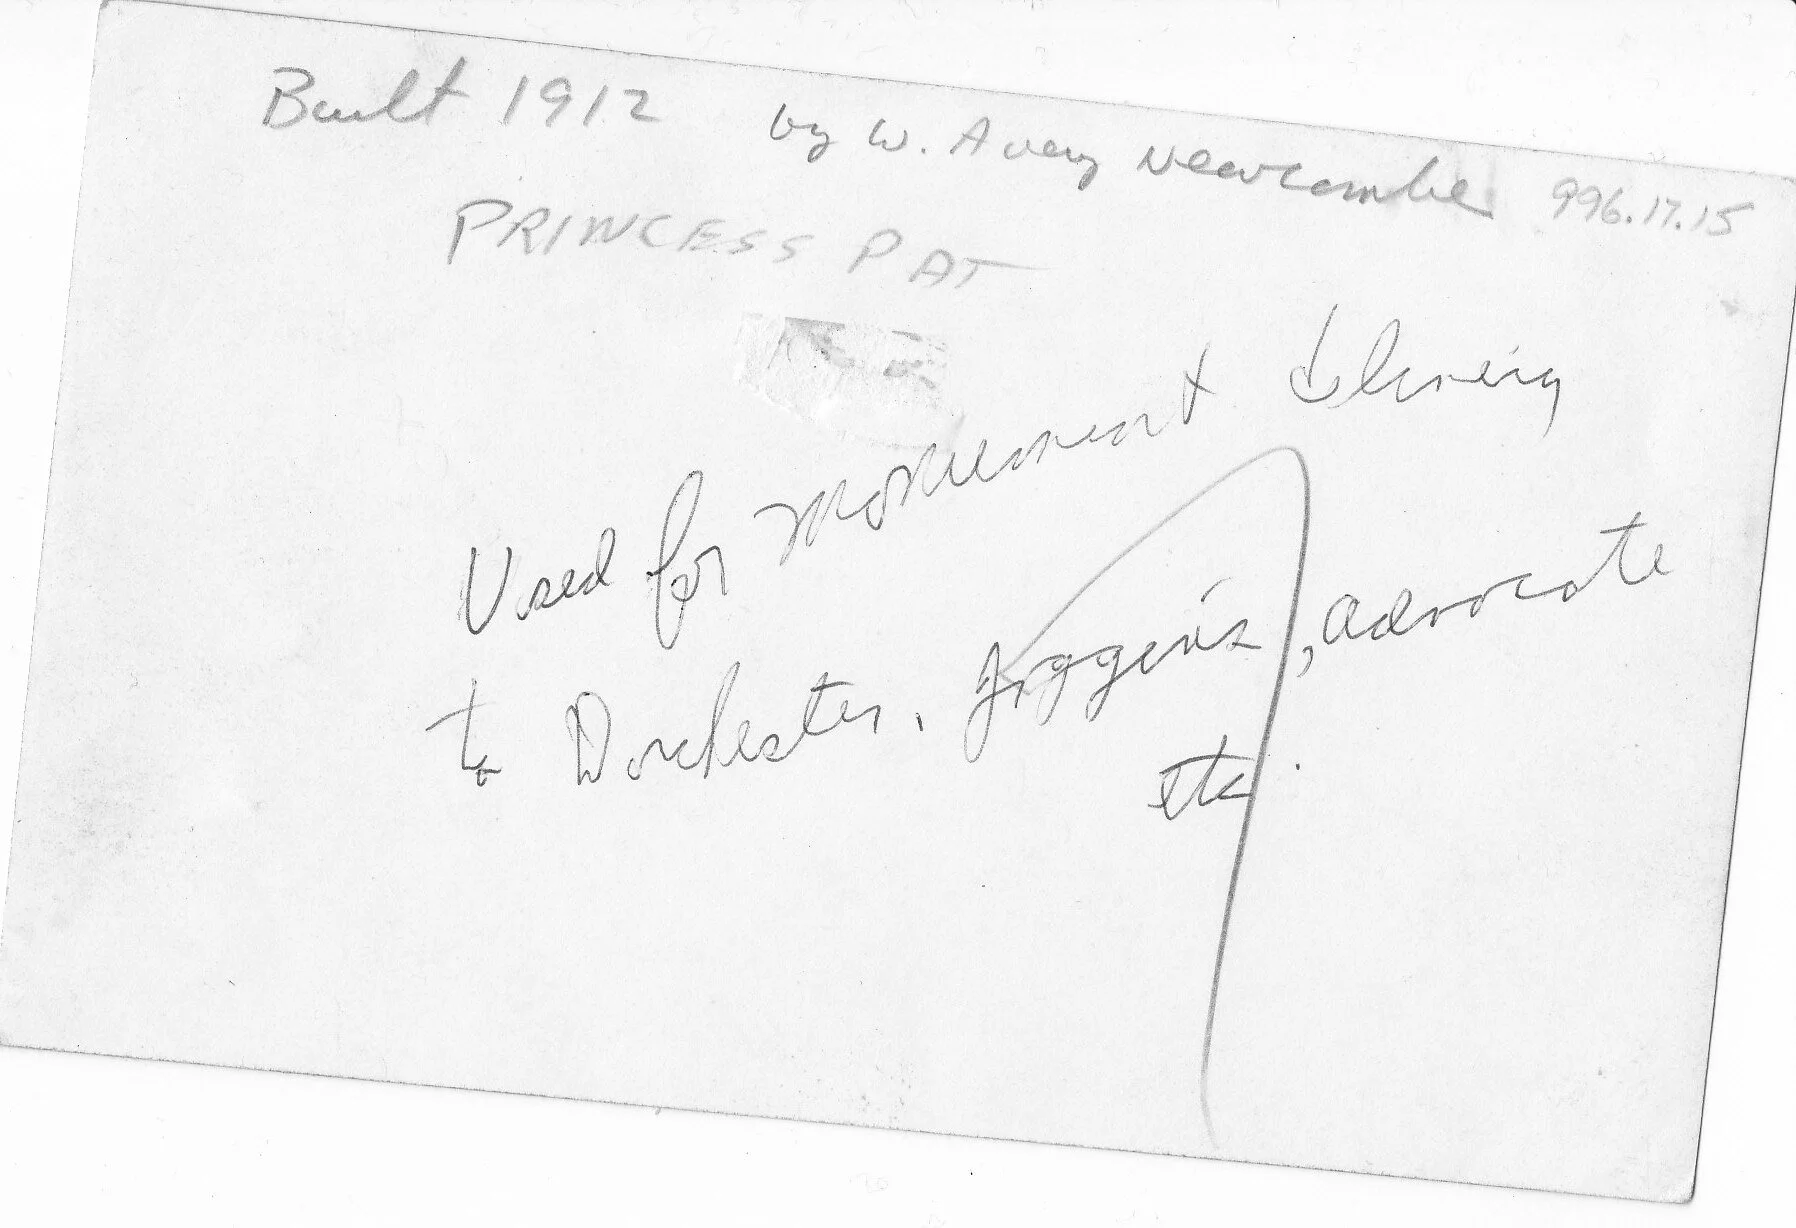 Built 1912 by W. Avery Newcombe 996.17.15
PRINCESS PAT
Used for Monument
to Dorchester, Joggins, Advocate
etc.